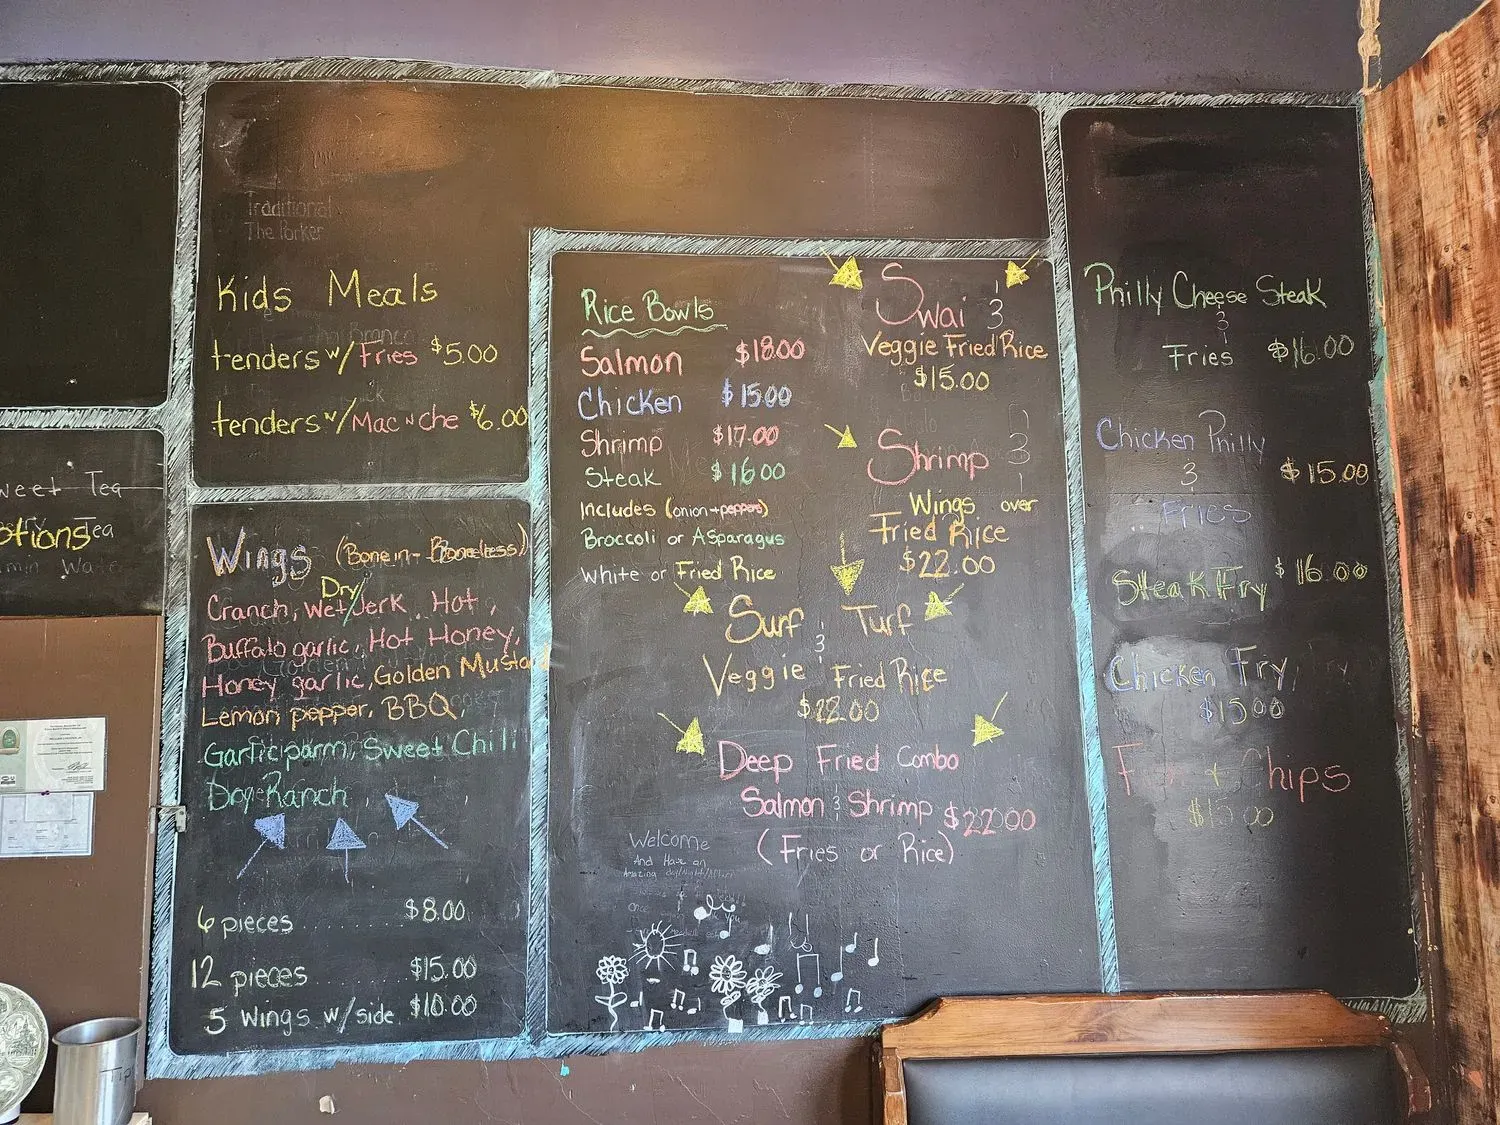 Traditional
The Porker
Kids Meals
tenders w/Fries $5.00
tenders w/Mac n Che $6.00
weet Tea
Tea
otions
min Wate
Wings (Bonein-Boneless)
Dry/
Cranch, Wet/Jerk, Hot,
Buffalo garlic, Hot Honey,
Honey garlic, Golden Mustard
Lemon pepper, BBQ,
Garlic parm, Sweet Chili
Dry Ranch,
6 pieces ........ $8.00
12 pieces ........ $15.00
5 Wings w/side. $10.00
Rice Bowls
Salmon $18.00
Chicken $15.00
Shrimp $17.00
Steak $16.00
Includes (onion+peppers)
Broccoli or Asparagus
White or Fried Rice
Swai &
Veggie Fried Rice
$15.00
Shrimp &
Wings over
Fried Rice
$22.00
Surf & Turf
Veggie Fried Rice
$22.00
Deep Fried Combo
Salmon & Shrimp $22.00
(Fries or Rice)
Welcome
And Have an
Amazing day/Night/After
Philly Cheese Steak
&
Fries $16.00
Chicken Philly
& $15.00
Fries
Steak Fry $16.00
Chicken Fry
$15.00
Fish + Chips
$15.00
Tip